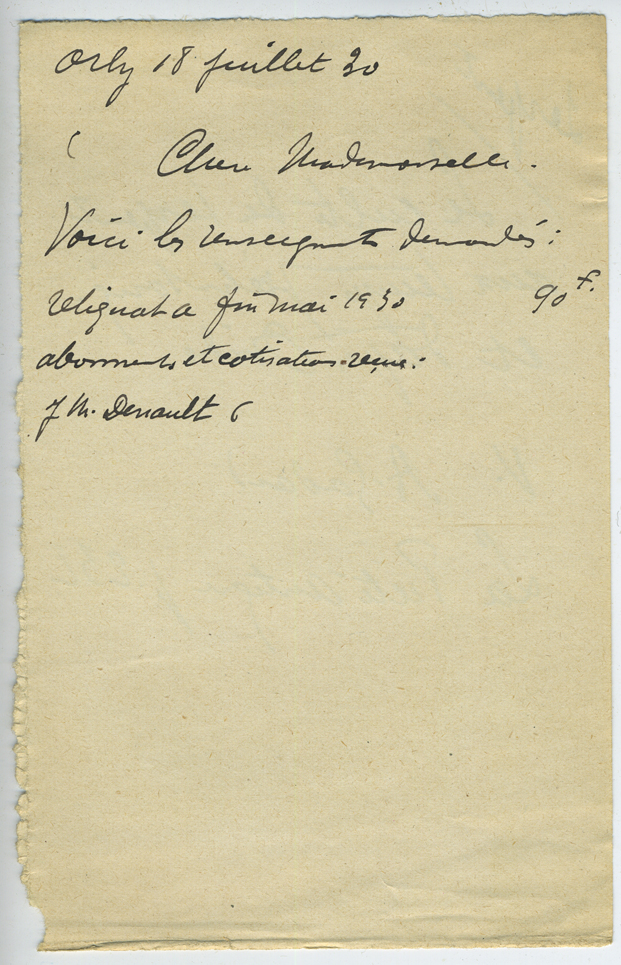 Orly 18 juillet 30
Chere Mademoiselle.
Voici les renseignents demandés :
reliquat a fin mai 1930 90 f.
abonnements et cotisations reçus :
J M. Denault 6